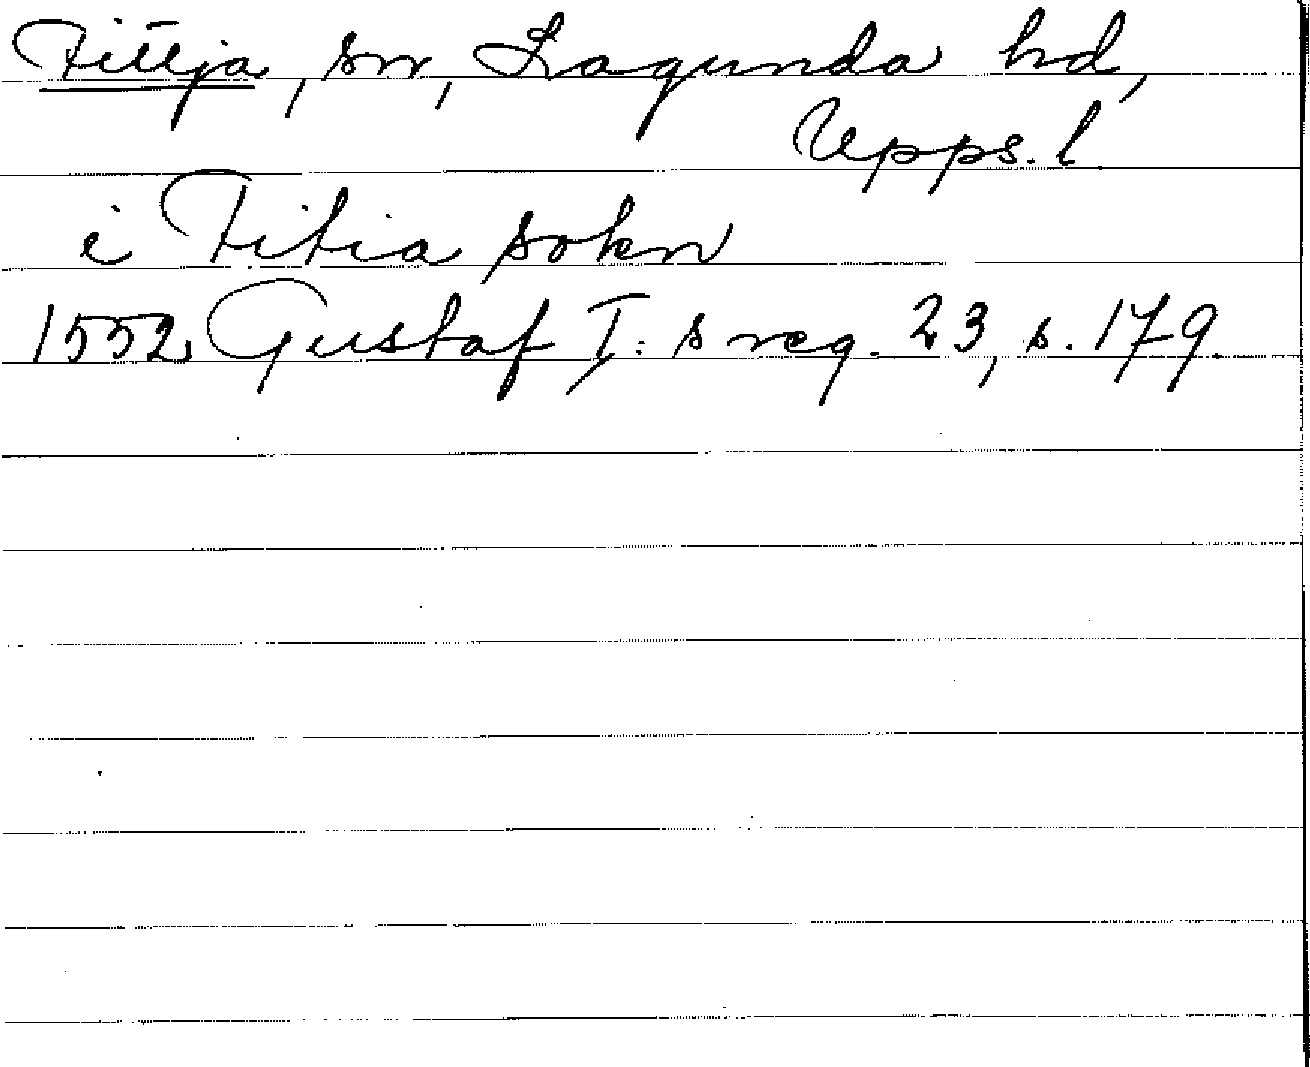 Fittja, sn, Lagunda hd,
Upps. l.
i Fitia sokn
1552 Gustaf I:s reg. 23, s. 179.